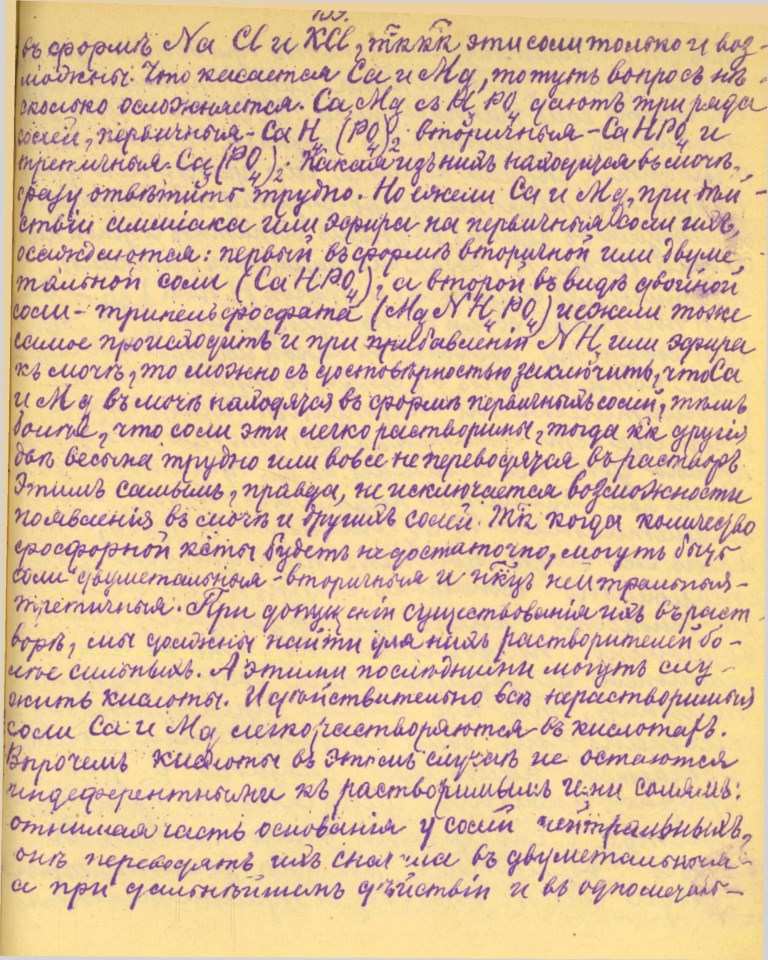 109.
въ формѣ Na Cl и KCl, т҃к к҃к эти соли только и воз-
можны. Что касается Ca и Mg, то тутъ вопросъ нѣ-
сколько осложняется. Ca Mg съ H3PO4 даютъ три ряда
солей, первичныя - CaH4(PO4)2 вторичныя - CaHPO4 и
третичныя. Ca3(PO4)2. Какая изъ нихъ находится въ мочѣ,
сразу отвѣтить трудно. Но ежели Ca и Mg, при дѣй-
ствіи амміака или эфира на первичныя соли ихъ,
осаждаются: первый въ формѣ вторичной или двуме-
тальной соли (CaHPO4), а второй въ видѣ двойной
соли - трипельфосфата (MgNH4PO4) и ежели тоже
самое происходитъ и при прибавленіи NH3 или эфира
къ мочѣ, то можно съ достовѣрностью заключить, что Ca
и Mg въ мочѣ находятся въ формѣ первичныхъ солей, тѣмъ
болѣе, что соли эти легко растворимы, тогда к҃к другія
двѣ весьма трудно или вовсе не переводятся въ растворъ.
Этимъ самымъ, правда, не исключается возможности
появленія въ мочѣ и другихъ солей. Т҃к когда количество
фосфорной к҃сты будетъ недостаточно, могутъ быть
соли двуметальныя - вторичныя и н҃кцъ нейтральныя -
третичныя. При допущеніи существованія ихъ въ раст-
ворѣ, мы должны найти для нихъ растворителей бо-
лѣе сильныхъ. А этими послѣдними могутъ слу-
жить кислоты. И дѣйствительно всѣ нерастворимыя
соли Ca и Mg легко растворяются въ кислотахъ.
Впрочемъ кислоты въ этомъ случаѣ не остаются
индеферентными къ растворимымъ ими солямъ:
отнимая часть основанія у солей нейтральныхъ,
онѣ переводятъ ихъ сначала въ двуметальныя -
а при дальнѣйшемъ дѣйствіи и въ однометаль-